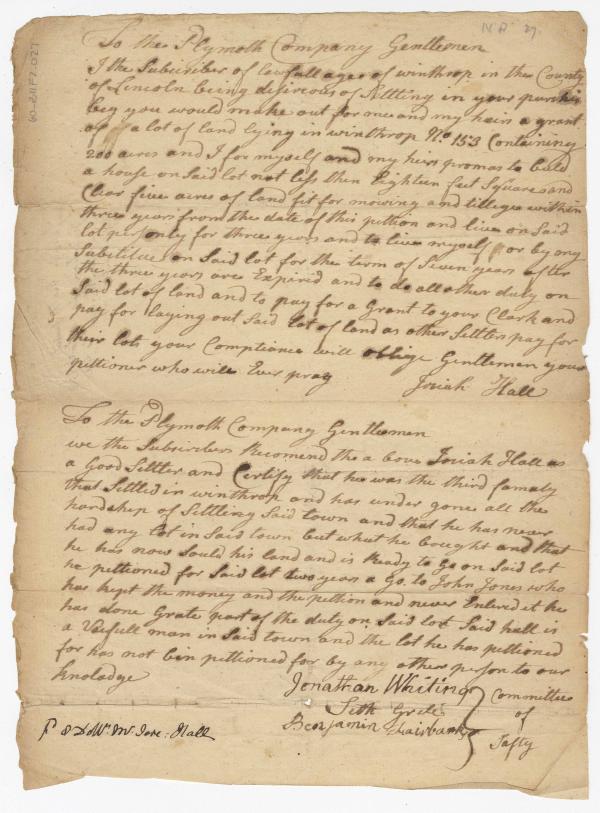 N.A. 29.
To the Plymoth Company Gentlemen
I the Subscriber of lawfull age of winthrop in the County
of Lincoln being desireous of Settling in your purchis
beg you would make out for me and my heirs a grant
of a lot of land lying in winthrop No 153 Containing
200 acres and I for myself and my heirs promas to buld
a house on Said lot not less then Eighteen feet Square and
Clear five acres of land fit for mowing and tillege within
three years from the date of this petition and live on Said
lot personly for three years and to live myself or by my
Substitue on Said lot for the term of Seven years after
the three years are Expired and to do all other duty on
Said lot of land and to pay for a Grant to your Clark and
pay for laying out Said lot of land as other Settlers pay for
their lots your Compliance will oblige Gentlemen your
petitioner who will Ever pray Josiah Hall
To the Plymoth Company Gentlemen
we the Subscribers Recomend the above Josiah Hall as
a Good Settler and Certify that he was the third famaly
that Settled in winthrop and has under gone all the
hardshep of Settling Said town and that he has never
had any lot in Said town but what he bought and that
he has now Sould his land and is Ready to Go on Said lot
he petitioned for Said lot two years a Go to John Jones who
has kept the money and the petition and never Entered it he
has done Grate part of the duty on Said lot Said hall is
a Usefull man in Said town and the lot he has petitioned
for has not bin petitioned for by any other person to our
knoladge
Jonathan Whiting
Seth Greele
Benjamin Fairbanks
Committee
of
Safty
Hall